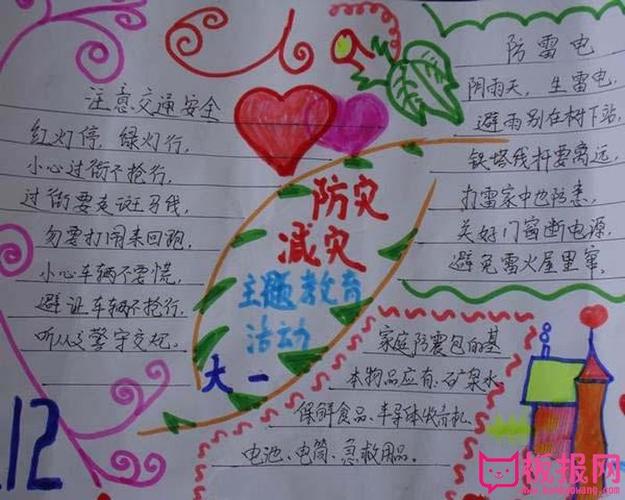 注意交通安全
红灯停，绿灯行，
小心过街不抢行，
过街要走斑马线，
勿要打闹来回跑，
小心车辆不要慌，
避让车辆不抢行，
听从交警守交规。
12
防灾
减灾
主题教育
活动
大一
防雷电
阴雨天，生雷电，
避雨别在树下站，
铁塔线杆要离远，
打雷家中也防患，
关好门窗断电源，
避免雷火屋里窜。
家庭防震包的基
本物品应有：矿泉水、
保鲜食品、半导体收音机、
电池、电筒、急救用品。
板报网